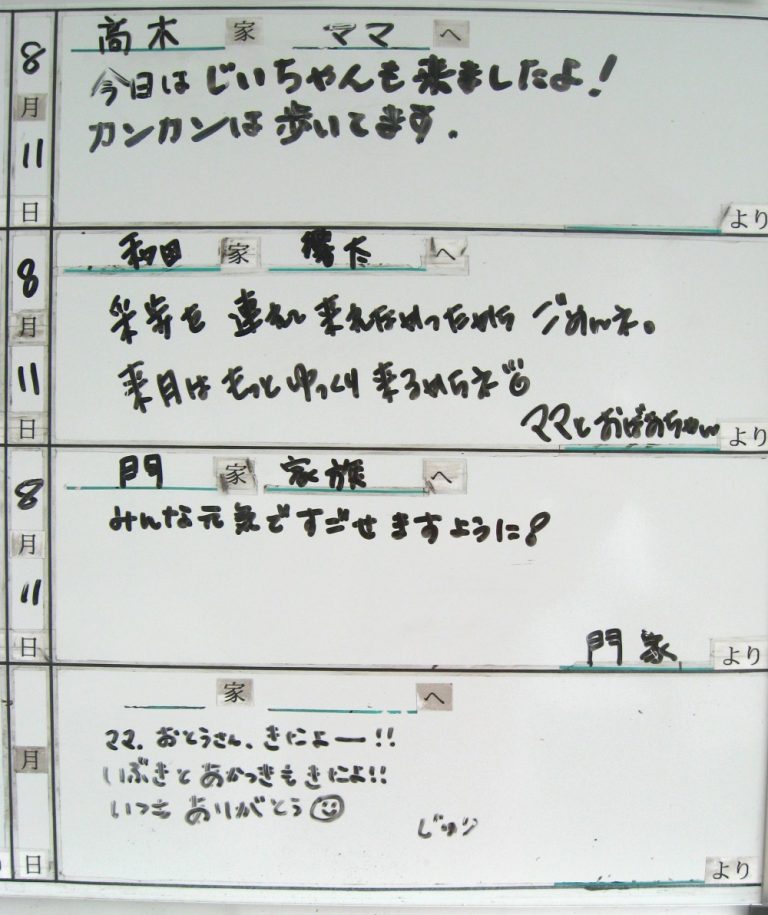 高木 家 ママ へ
8月11日
今日はじいちゃんも来ましたよ!
カンカンは歩いてます.
より
和田 家 へ
8月11日
を連れて来れなかったから ごめんネ。
来月はもっとゆっくり来るからネ
ママとおばあちゃん より
門 家 家族 へ
8月11日
みんな元気ですごせますように
門家 より
家 へ
月 日
ママ、おとうさん、きたよー!!
いぶきとあかつきもきたよ!!
いつも ありがとう
より